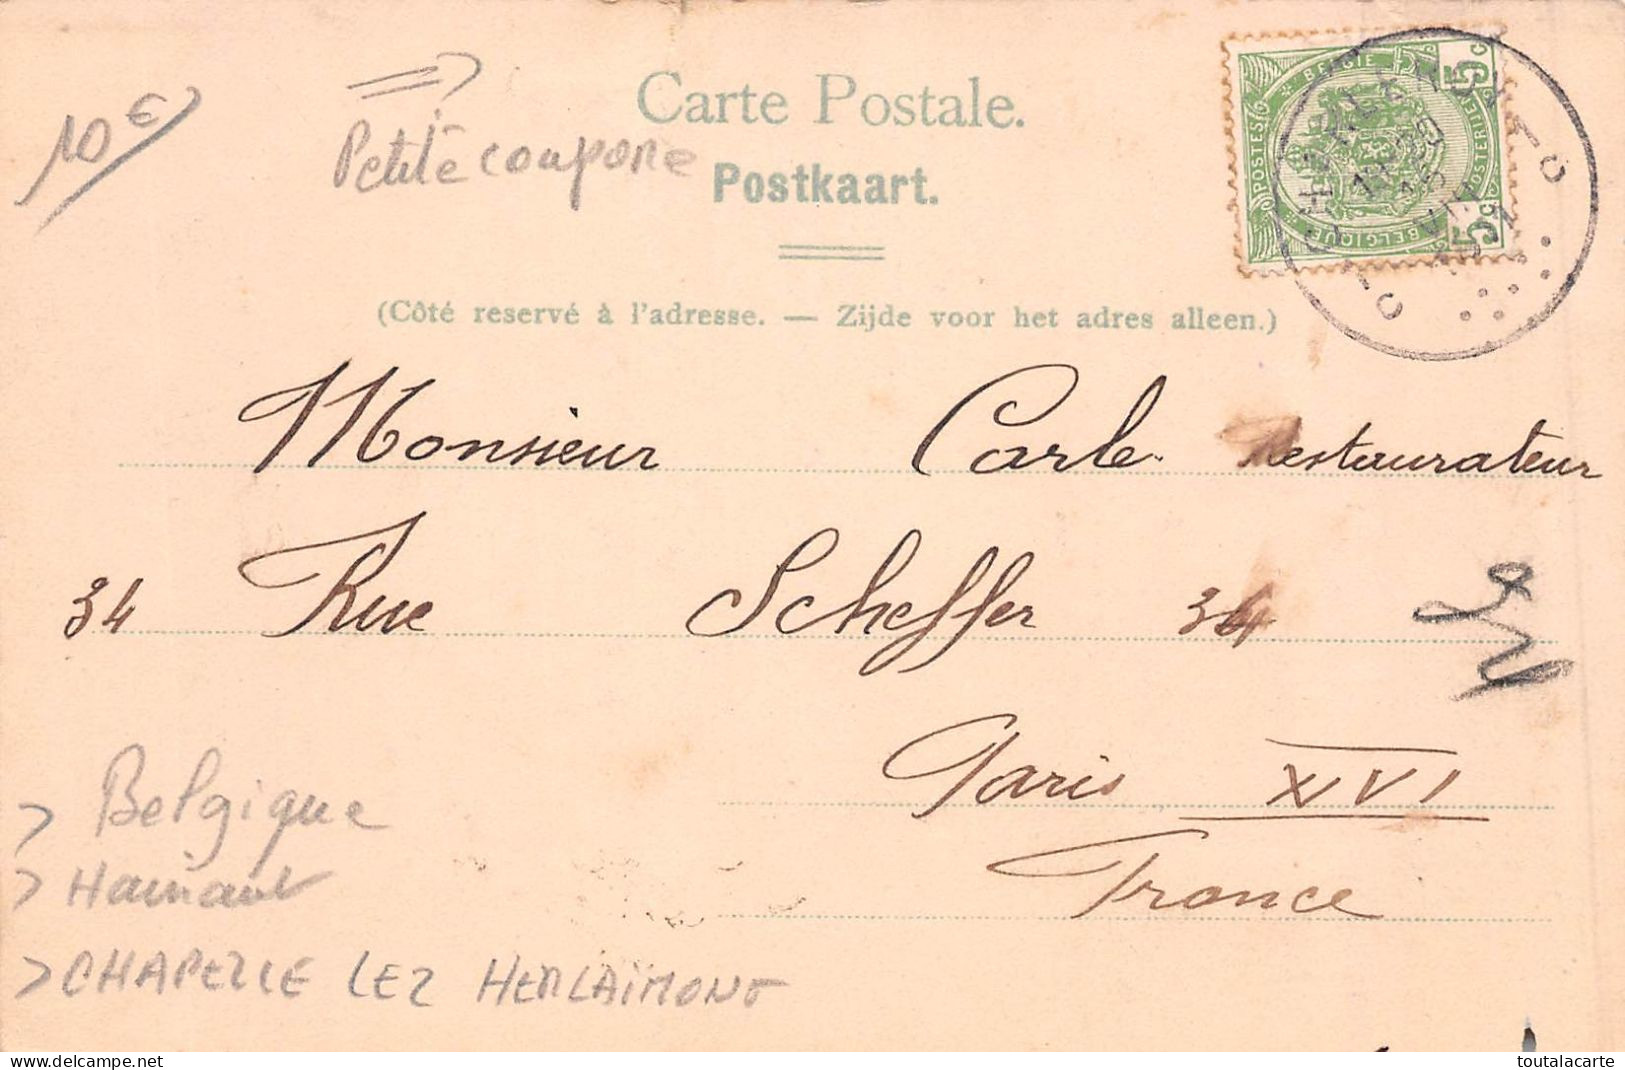 10 €
Petite coupure
Carte Postale.
Postkaart.
(Côté reservé à l'adresse. — Zijde voor het adres alleen.)
BELGIE
POSTES
POSTERIJEN
BELGIQUE
5 c
5 c
Monsieur Carle Restaurateur
34 Rue Scheffer 34
Paris XVI
France
> Belgique
> Hainaut
> CHAPELLE LEZ HERLAIMONT
delcampe.net
toutalacarte